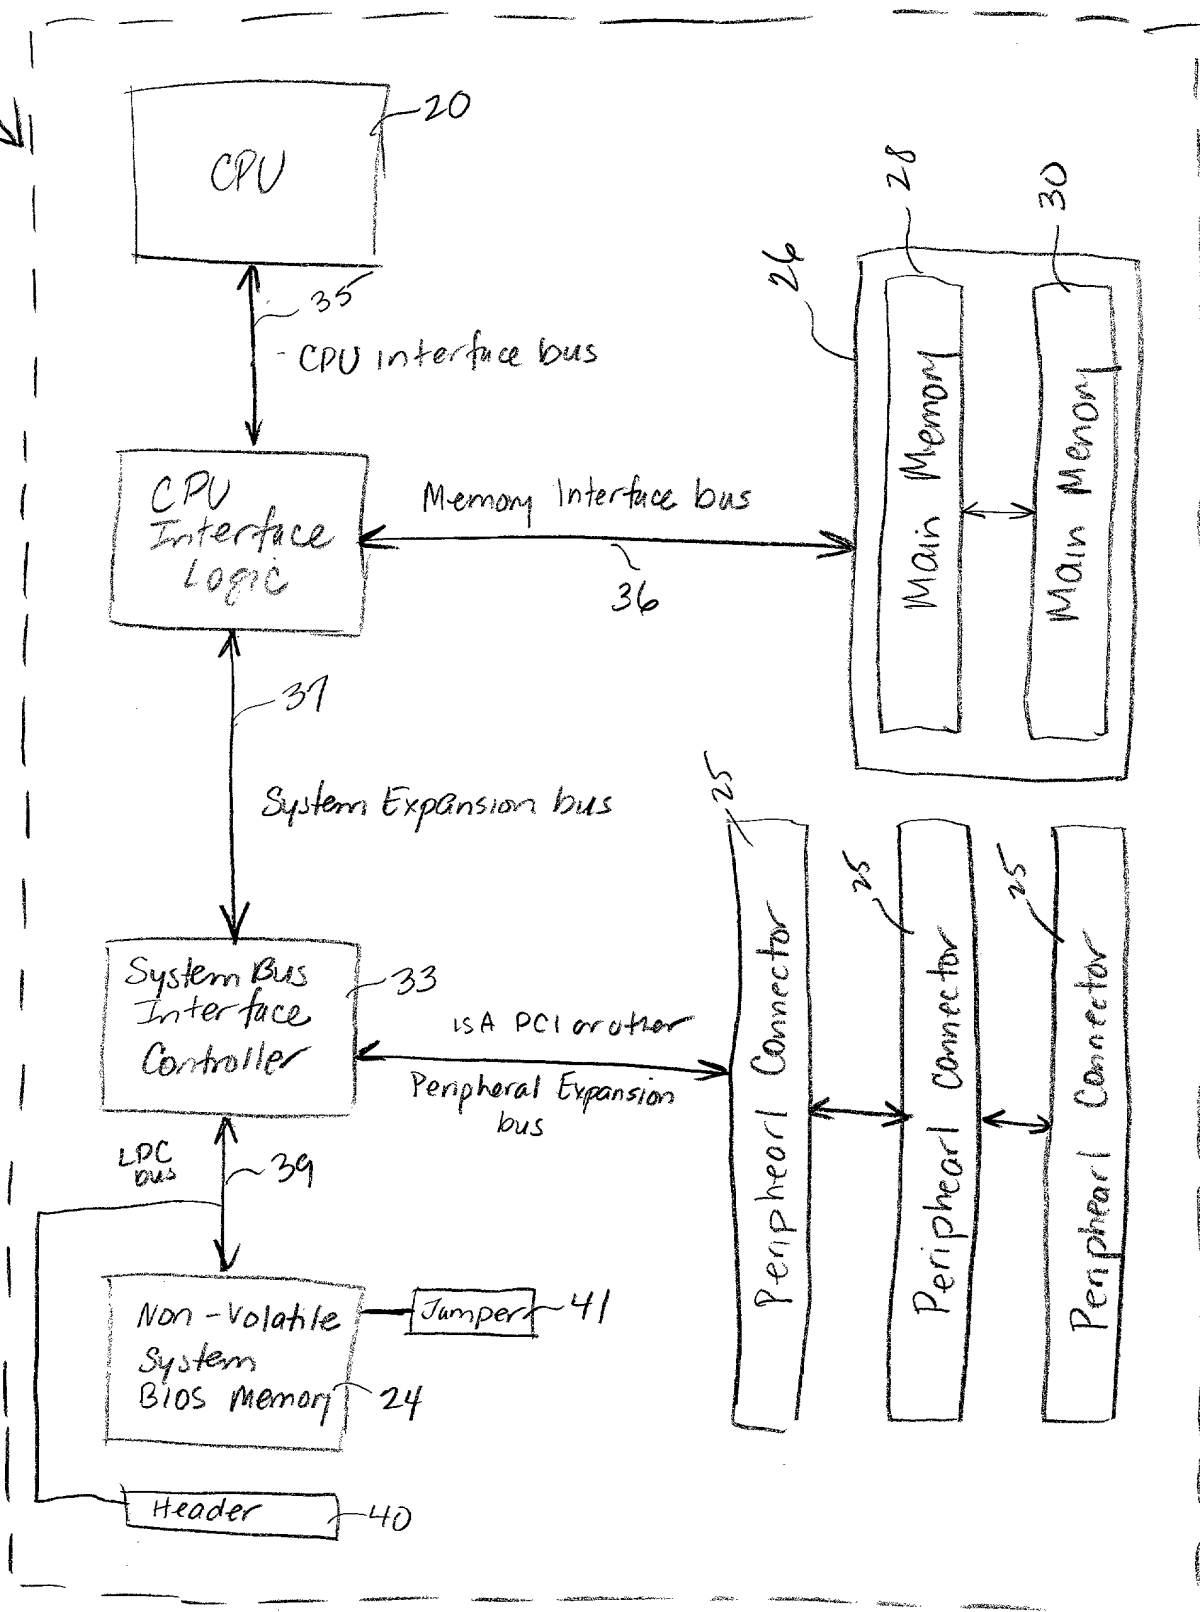 20
CPU
35
CPU interface bus
CPU
Interface
Logic
Memory Interface bus
36
26
28
30
Main Memory
Main Memory
37
System Expansion bus
System Bus
Interface
Controller
33
isA PCI or other
Peripheral Expansion
bus
25
25
25
Periphearl Connector
Periphearl Connector
Periphearl Connector
LPC
bus
39
Non-Volatile
System
BIOS Memory
24
Jumper
41
Header
40